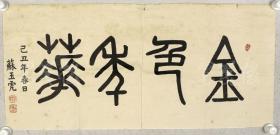 金色年華
己丑年春日
蘇玉虎